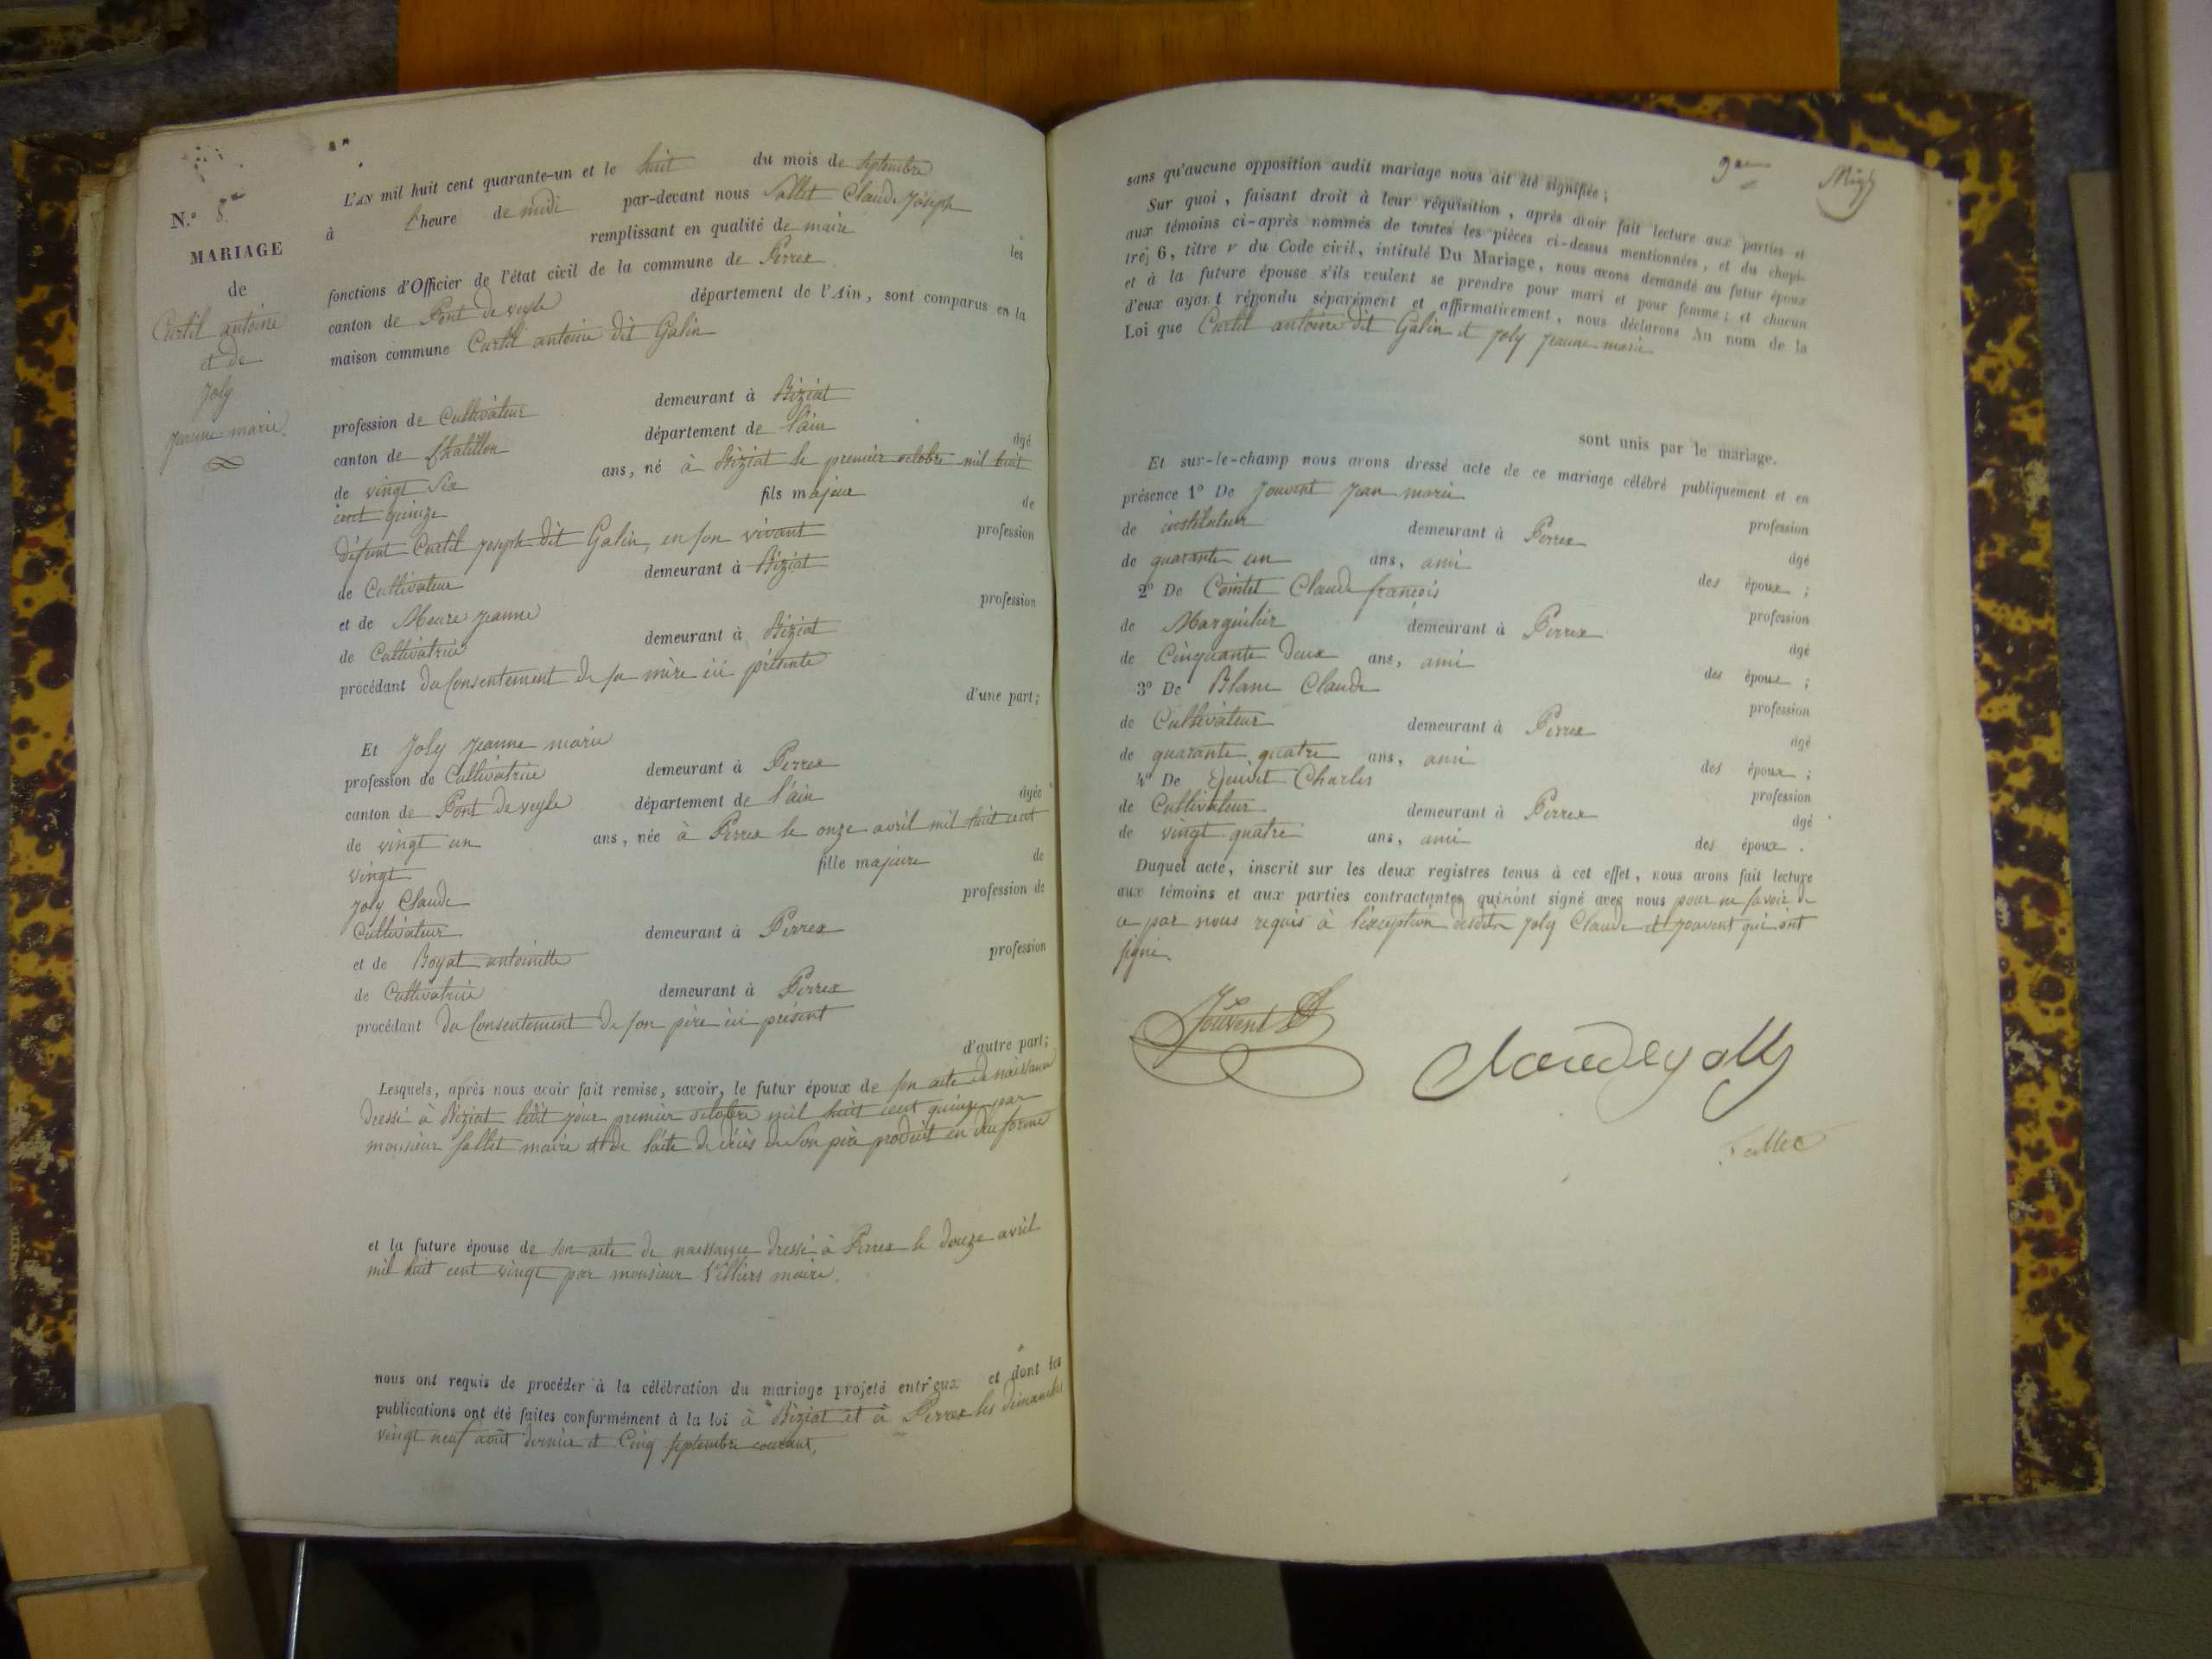 N.º 8.
MARIAGE
de
Curtil antoine
et de
Joly
jeanne marie.
L'AN mil huit cent quarante-un et le huit du mois de septembre
à l'heure de midi par-devant nous Sallet Claude Joseph
remplissant en qualité de maire les
fonctions d'Officier de l'état civil de la commune de Perrex
canton de Pont de veyle département de l'Ain, sont comparus en la
maison commune Curtil antoine dit Galin
profession de Cultivateur demeurant à Biziat
canton de Chatillon département de l'ain âgé
de vingt six ans, né à Biziat le premier octobre mil huit
cent quinze fils majeur de
défunt Curtil joseph dit Galin, en son vivant profession
de Cultivateur demeurant à Biziat
et de Meure jeanne profession
de Cultivatrice demeurant à Biziat
procédant du Consentement de sa mère ici présente
d'une part;
Et Joly jeanne marie
profession de Cultivatrice demeurant à Perrex
canton de Pont de veyle département de l'ain âgée
de vingt un ans, née à Perrex le onze avril mil huit cent
vingt fille majeure de
joly Claude profession de
Cultivateur demeurant à Perrex
et de Boyat antoinette profession
de Cultivatrice demeurant à Perrex
procédant du Consentement de son père ici présent
d'autre part;
Lesquels, après nous avoir fait remise, savoir, le futur époux de son acte de naissance
dressé à Biziat ledit jour premier octobre mil huit cent quinze par
monsieur Sallet maire et de l'acte de décès de son père produit en due forme
et la future épouse de son acte de naissance dressé à Perrex le douze avril
mil huit cent vingt par monsieur Villiers maire.
nous ont requis de procéder à la célébration du mariage projeté entr'eux et dont les
publications ont été faites conformément à la loi à Biziat et à Perrex les dimanches
vingt neuf aout dernier et Cinq septembre courant,
sans qu'aucune opposition audit mariage nous ait été signifiée;
Sur quoi, faisant droit à leur réquisition, après avoir fait lecture aux parties et
aux témoins ci-après nommés de toutes les pièces ci-dessus mentionnées, et du chapi-
trej 6, titre v du Code civil, intitulé Du Mariage, nous avons demandé au futur époux
et à la future épouse s'ils veulent se prendre pour mari et pour femme; et chacun
d'eux ayant répondu séparément et affirmativement, nous déclarons Au nom de la
Loi que Curtil antoine dit Galin et joly jeanne marie
sont unis par le mariage.
Et sur-le-champ nous avons dressé acte de ce mariage célébré publiquement et en
présence 1º De Jouvent jean marie profession
de instituteur demeurant à Perrex âgé
de quarante un ans, ami des époux;
2º De Comtet Claude françois profession
de Marguilier demeurant à Perrex âgé
de Cinquante deux ans, ami des époux;
3º De Blanc Claude profession
de Cultivateur demeurant à Perrex âgé
de quarante quatre ans, ami des époux;
4º De Charles profession
de Cultivateur demeurant à Perrex âgé
de vingt quatre ans, ami des époux.
Duquel acte, inscrit sur les deux registres tenus à cet effet, nous avons fait lecture
aux témoins et aux parties contractantes qui n'ont signé avec nous pour ne savoir de
ce par nous requis à l'exception desdits Joly Claude et jouvent qui ont
signé.
Jouvent
Claude jolly
Sallet